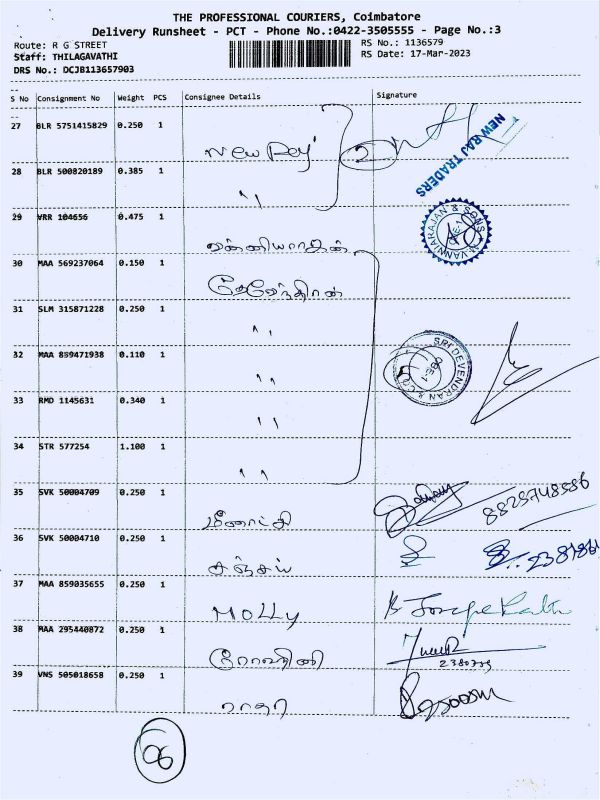 THE PROFESSIONAL COURIERS, Coimbatore
Delivery Runsheet - PCT - Phone No.:0422-3505555 - Page No.:3
Route: R G STREET
RS No.: 1136579
Staff: THILAGAVATHI
RS Date: 17-Mar-2023
DRS No.: DCJB113657903
S No Consignment No Weight PCS Consignee Details Signature
27 BLR 5751415829 0.250 1
New Raj
NEW RAJ TRADERS
28 BLR 500820189 0.385 1
" 
29 VRR 104656 0.475 1
வன்னியராஜன்
VANNIARAJAN & SONS
30 MAA 569237064 0.150 1
தேவேந்திரன்
31 SLM 315871228 0.250 1
"
32 MAA 859471938 0.110 1
"
SRI DEVENDRAN & CO
CBE-1
33 RMD 1145631 0.340 1
"
34 STR 577254 1.100 1
"
35 SVK 50004709 0.250 1
மீனாட்சி
8825748586
36 SVK 50004710 0.250 1
சஞ்சய்
37 MAA 859035655 0.250 1
MOLLY
38 MAA 295440872 0.250 1
ரோகினி
39 VNS 505018658 0.250 1
ராதா
06